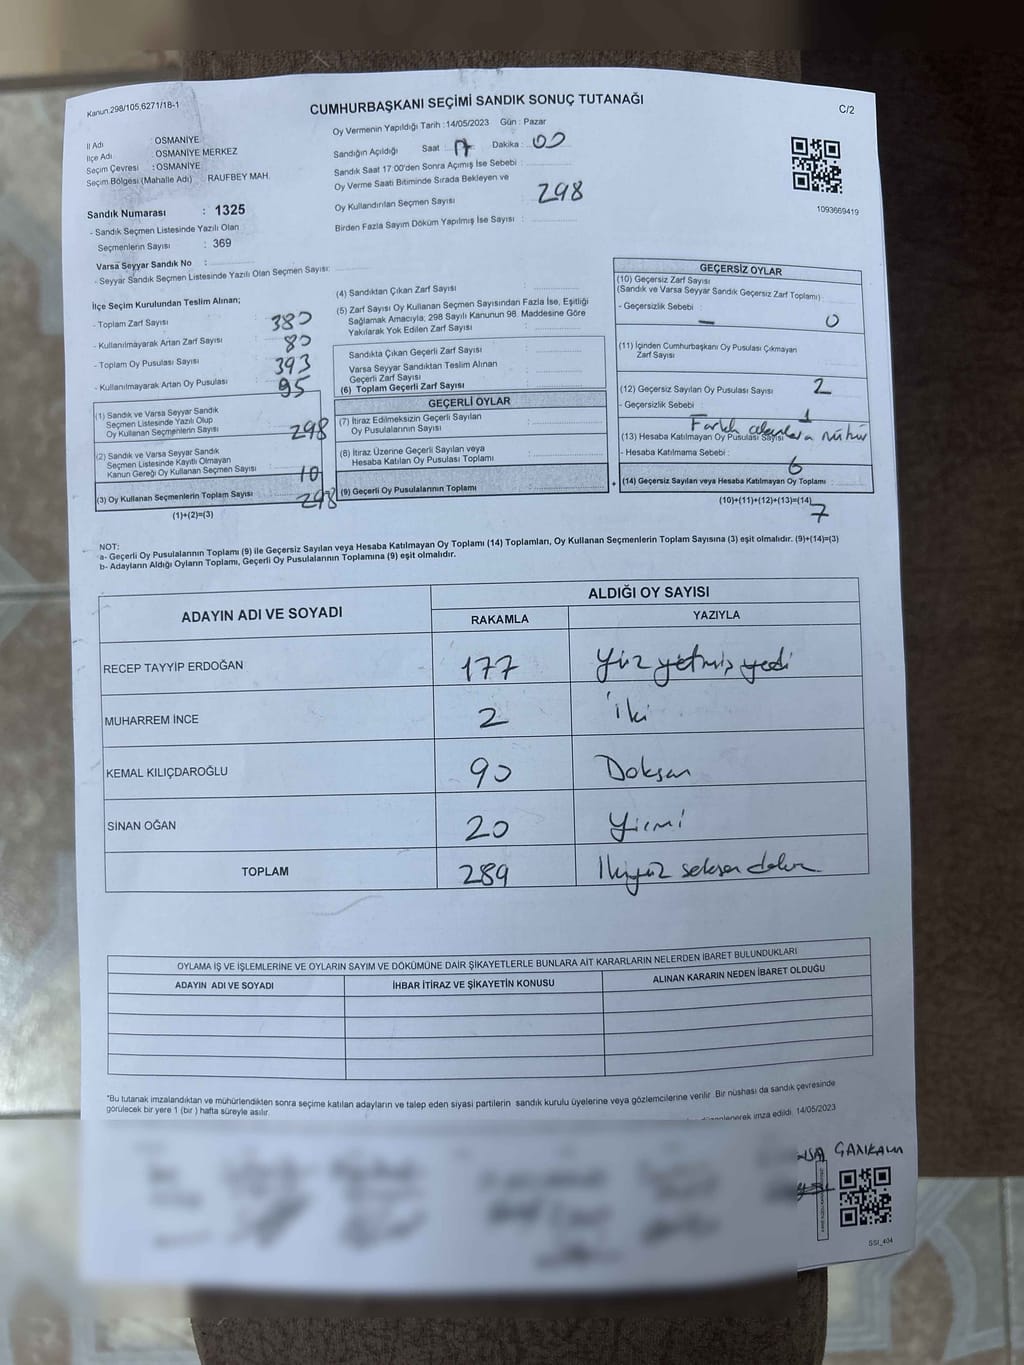 Kanun:298/105,6271/18-1
CUMHURBAŞKANI SEÇİMİ SANDIK SONUÇ TUTANAĞI
C/2
Oy Vermenin Yapıldığı Tarih :14/05/2023 Gün : Pazar
İl Adı : OSMANİYE
İlçe Adı : OSMANİYE MERKEZ
Seçim Çevresi : OSMANİYE
Seçim Bölgesi (Mahalle Adı) RAUFBEY MAH.
Sandık Numarası : 1325
- Sandık Seçmen Listesinde Yazılı Olan
Seçmenlerin Sayısı : 369
Varsa Seyyar Sandık No :
- Seyyar Sandık Seçmen Listesinde Yazılı Olan Seçmen Sayısı:
Sandığın Açıldığı Saat : 17 Dakika : 00
Sandık Saat 17:00'den Sonra Açımış İse Sebebi :
Oy Verme Saati Bitiminde Sırada Bekleyen ve
Oy Kullandırılan Seçmen Sayısı : 298
Birden Fazla Sayım Döküm Yapılmış İse Sayısı :
1093669419
İlçe Seçim Kurulundan Teslim Alınan;
- Toplam Zarf Sayısı : 380
- Kullanılmayarak Artan Zarf Sayısı : 80
- Toplam Oy Pusulası Sayısı : 393
- Kullanılmayarak Artan Oy Pusulası : 95
(1) Sandık ve Varsa Seyyar Sandık
Seçmen Listesinde Yazılı Olup
Oy Kullanan Seçmenlerin Sayısı : 298
(2) Sandık ve Varsa Seyyar Sandık
Seçmen Listesinde Kayıtlı Olmayan
Kanun Gereği Oy Kullanan Seçmen Sayısı : 10
(3) Oy Kullanan Seçmenlerin Toplam Sayısı : 298
(1)+(2)=(3)
(4) Sandıktan Çıkan Zarf Sayısı :
(5) Zarf Sayısı Oy Kullanan Seçmen Sayısından Fazla İse, Eşitliği
Sağlamak Amacıyla; 298 Sayılı Kanunun 98. Maddesine Göre
Yakılarak Yok Edilen Zarf Sayısı :
Sandıkta Çıkan Geçerli Zarf Sayısı :
Varsa Seyyar Sandıktan Teslim Alınan
Geçerli Zarf Sayısı :
(6) Toplam Geçerli Zarf Sayısı :
GEÇERLİ OYLAR
(7) İtiraz Edilmeksizin Geçerli Sayılan
Oy Pusulalarının Sayısı :
(8) İtiraz Üzerine Geçerli Sayılan veya
Hesaba Katılan Oy Pusulası Toplamı :
(9) Geçerli Oy Pusulalarının Toplamı :
GEÇERSİZ OYLAR
(10) Geçersiz Zarf Sayısı
(Sandık ve Varsa Seyyar Sandık Geçersiz Zarf Toplamı)
- Geçersizlik Sebebi : 0
–
(11) İçinden Cumhurbaşkanı Oy Pusulası Çıkmayan
Zarf Sayısı :
(12) Geçersiz Sayılan Oy Pusulası Sayısı : 2
- Geçersizlik Sebebi : 1
Farklı
(13) Hesaba Katılmayan Oy Pusulası Sayısı
- Hesaba Katılmama Sebebi : 6
(14) Geçersiz Sayılan veya Hesaba Katılmayan Oy Toplamı :
(10)+(11)+(12)+(13)=(14)
7
NOT:
a- Geçerli Oy Pusulalarının Toplamı (9) ile Geçersiz Sayılan veya Hesaba Katılmayan Oy Toplamı (14) Toplamları, Oy Kullanan Seçmenlerin Toplam Sayısına (3) eşit olmalıdır. (9)+(14)=(3)
b- Adayların Aldığı Oyların Toplamı, Geçerli Oy Pusulalarının Toplamına (9) eşit olmalıdır.
ADAYIN ADI VE SOYADI
ALDIĞI OY SAYISI
RAKAMLA YAZIYLA
RECEP TAYYİP ERDOĞAN 177 Yüz yetmiş yedi
MUHARREM İNCE 2 iki
KEMAL KILIÇDAROĞLU 90 Doksan
SİNAN OĞAN 20 Yirmi
TOPLAM 289 İkiyüz seksen dokuz
OYLAMA İŞ VE İŞLEMLERİNE VE OYLARIN SAYIM VE DÖKÜMÜNE DAİR ŞİKAYETLERLE BUNLARA AİT KARARLARIN NELERDEN İBARET BULUNDUKLARI
ADAYIN ADI VE SOYADI İHBAR İTİRAZ VE ŞİKAYETİN KONUSU ALINAN KARARIN NEDEN İBARET OLDUĞU
*Bu tutanak imzalandıktan ve mühürlendikten sonra seçime katılan adayların ve talep eden siyasi partilerin sandık kurulu üyelerine veya gözlemcilerine verilir. Bir nüshası da sandık çevresinde
görülecek bir yere 1 (bir ) hafta süreyle asılır.
imza edildi. 14/05/2023
SSI_404